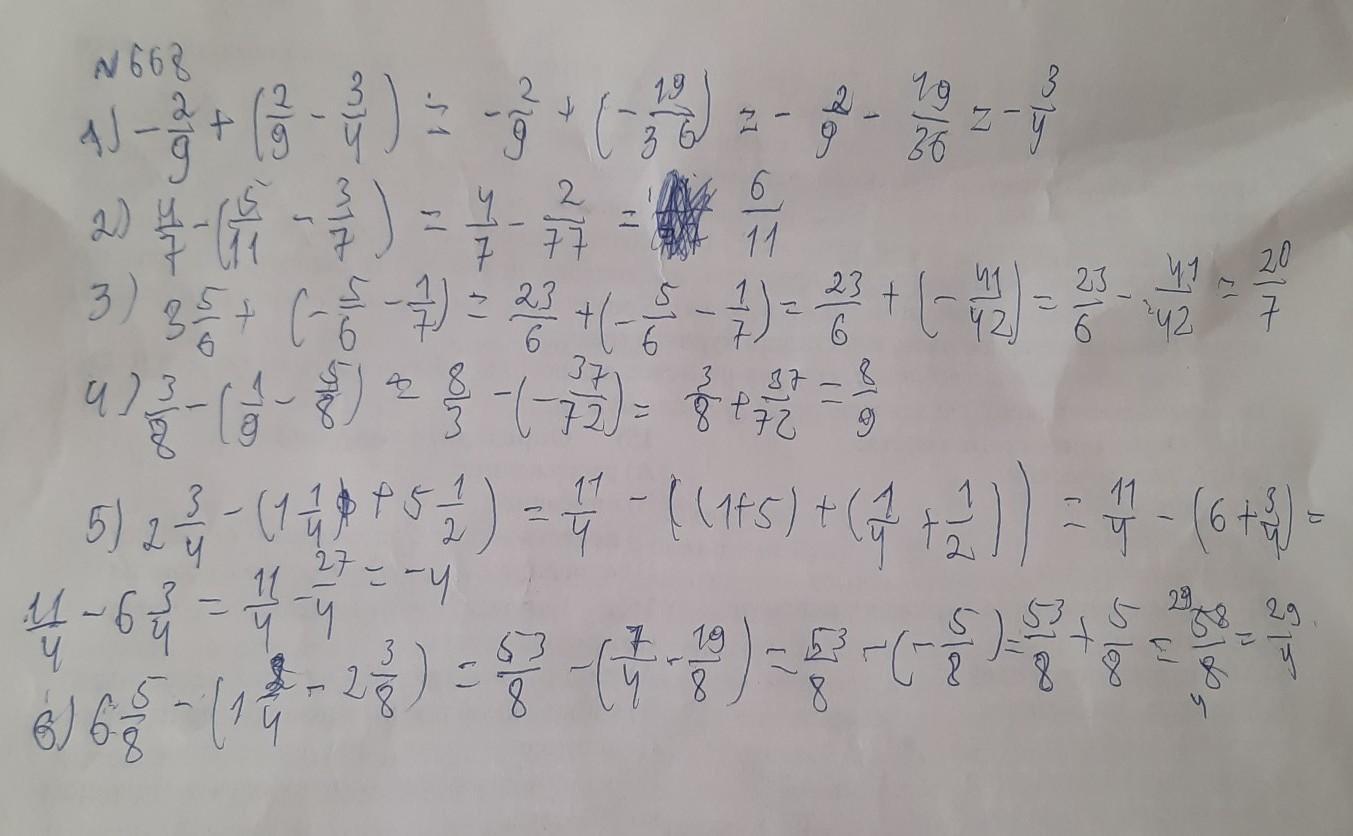 N668
1) -2/9 + (2/9 - 3/4) = -2/9 + (-19/36) = -2/9 - 19/36 = -3/4
2) 4/7 - (5/11 - 3/7) = 4/7 - 2/77 = 6/11
3) 3 5/6 + (-5/6 - 1/7) = 23/6 + (-5/6 - 1/7) = 23/6 + (-41/42) = 23/6 - 41/42 = 20/7
4) 3/8 - (1/9 - 5/8) = 8/3 - (-37/72) = 3/8 + 37/72 = 8/9
5) 2 3/4 - (1 1/4 + 5 1/2) = 11/4 - ((1+5) + (1/4 + 1/2)) = 11/4 - (6 + 3/4) =
11/4 - 6 3/4 = 11/4 - 27/4 = -4
6) 6 5/8 - (1 3/4 - 2 3/8) = 53/8 - (7/4 - 19/8) = 53/8 - (-5/8) = 53/8 + 5/8 = 29 58/8 4 = 29/4